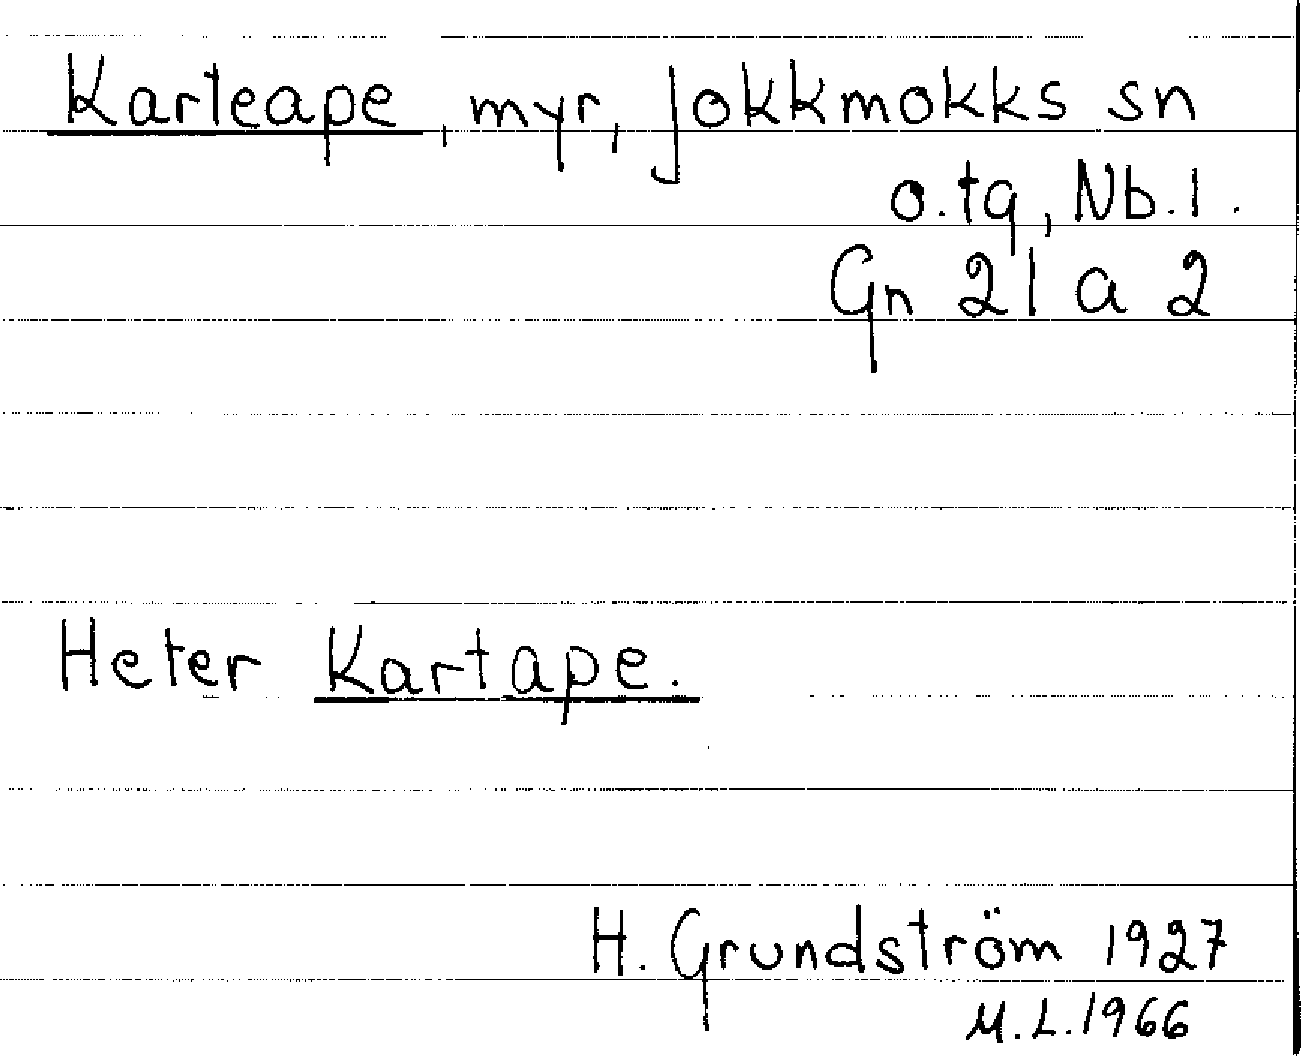 Karteape, myr, Jokkmokks sn
o. tg, Nb. l.
Gn 21 a 2
Heter Kartape.
H. Grundström 1927
M.L. 1966